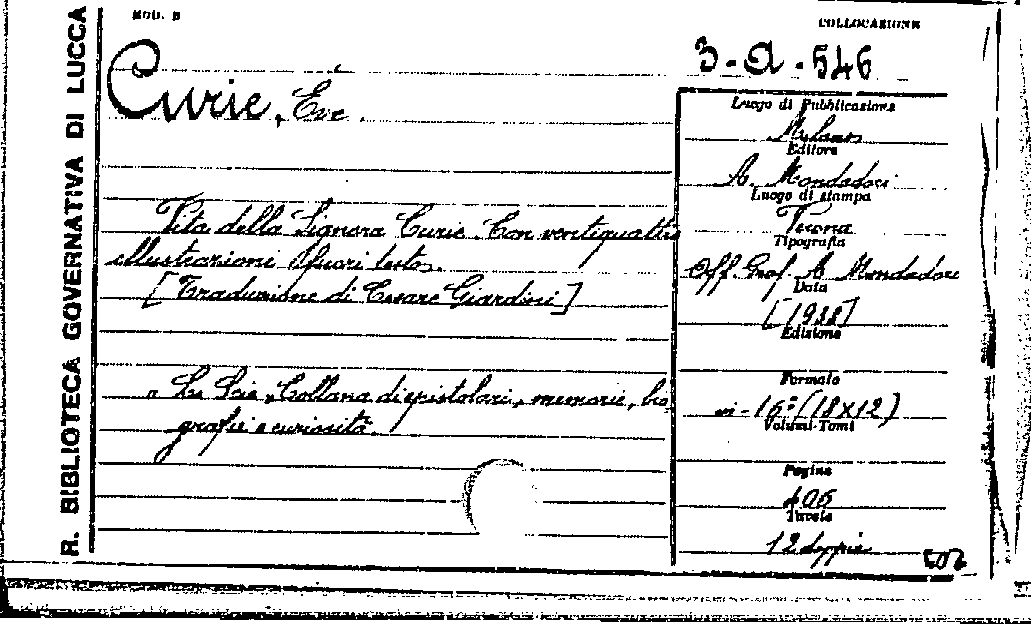 R. BIBLIOTECA GOVERNATIVA DI LUCCA
MOD. B
COLLOCAZIONE
3-Q-546
Curie, Eve.
Vita della Signora Curie. Con ventiquattro
illustrazioni fuori testo.
[Traduzione di Cesare Giardini]
"Le Scie, Collana di epistolari, memorie, bio
grafie e curiosità.
Luogo di Pubblicazione
Milano
Editore
A. Mondadori
Luogo di stampa
Verona
Tipografia
Off. Graf. A. Mondadori
Data
[1938]
Edizione
Formato
in-16º (18x12)
Volumi-Tomi
Pagine
406
Tavole
12 doppie
502